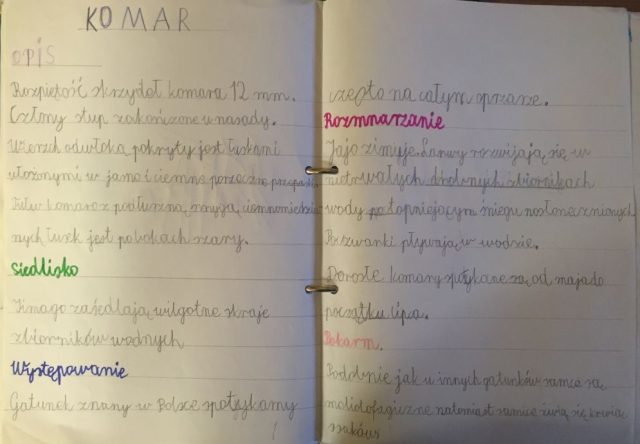 KOMAR
OPIS
Rozpiętość skrzydeł komara 12 mm.
Człony stup zakończone u nasady.
Wierzch odwłoka pokryty jest łuskami
ułożonymi w jasne i ciemne poprzeczne przepaski
komara z podłużną, smugą, ciemnomiedzia
nych łusek jest po bokach szary.
Siedlisko
Imago zasiedlają, wilgotne skraje
zbiorników wodnych
Występowanie
Gatunek znany w Polsce spotykamy
1
często na całym oprzaze.
Rozmnarzanie
Jajo zimuje. Larwy rozwijają, się w
nietrwałych drobnych zbiornikach
wody po topniejącym śniegu nasłonecznionych
Poczwarki pływają, w wodzie.
Dorosłe komary spotykane są, od maja do
początku lipa.
Pokarm.
Podobnie jak u innych gatunków samce są,
melidofagiczne natomiast samice żywią się krwią
ssaków